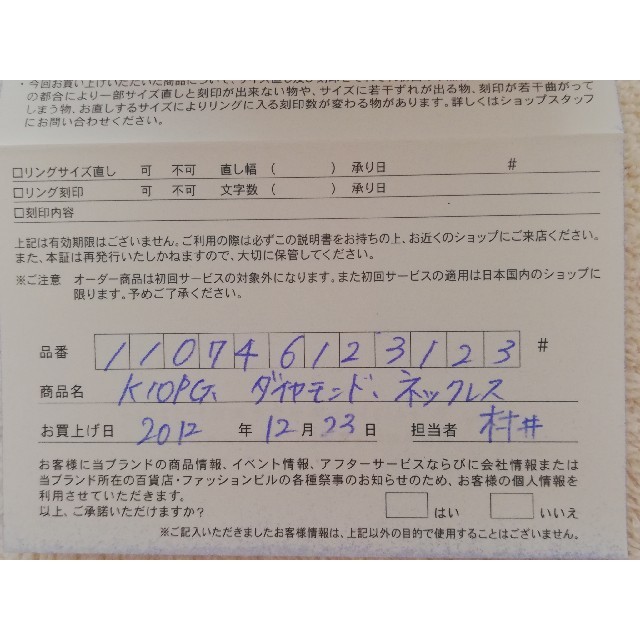 の都合により一部サイズ直しと刻印が出来ない物や、サイズに若干ずれが出る物、刻印が若干曲がって
しまう物、お直しするサイズによりリングに入る刻印数が変わる物があります。詳しくはショップスタッフ
にお問い合わせください。
□リングサイズ直し 可 不可 直し幅 ( ) 承り日 #
□リング刻印 可 不可 文字数 ( ) 承り日
□刻印内容
上記は有効期限はございません。ご利用の際は必ずこの説明書をお持ちの上、お近くのショップにご来店ください。
また、本証は再発行いたしかねますので、大切に保管してください。
※ご注意 オーダー商品は初回サービスの対象外になります。また初回サービスの適用は日本国内のショップに
限ります。予めご了承ください。
品番 110746123123 #
商品名 K10PG、ダイヤモンド、ネックレス
お買上げ日 2012 年 12 月 23 日 担当者 村井
お客様に当ブランドの商品情報、イベント情報、アフターサービスならびに会社情報または
当ブランド所在の百貨店・ファッションビルの各種祭事のお知らせのため、お客様の個人情報を
利用させていただきます。
以上、ご承諾いただけますか? □ はい □ いいえ
※ご記入いただきましたお客様情報は、上記以外の目的で使用することはございません。